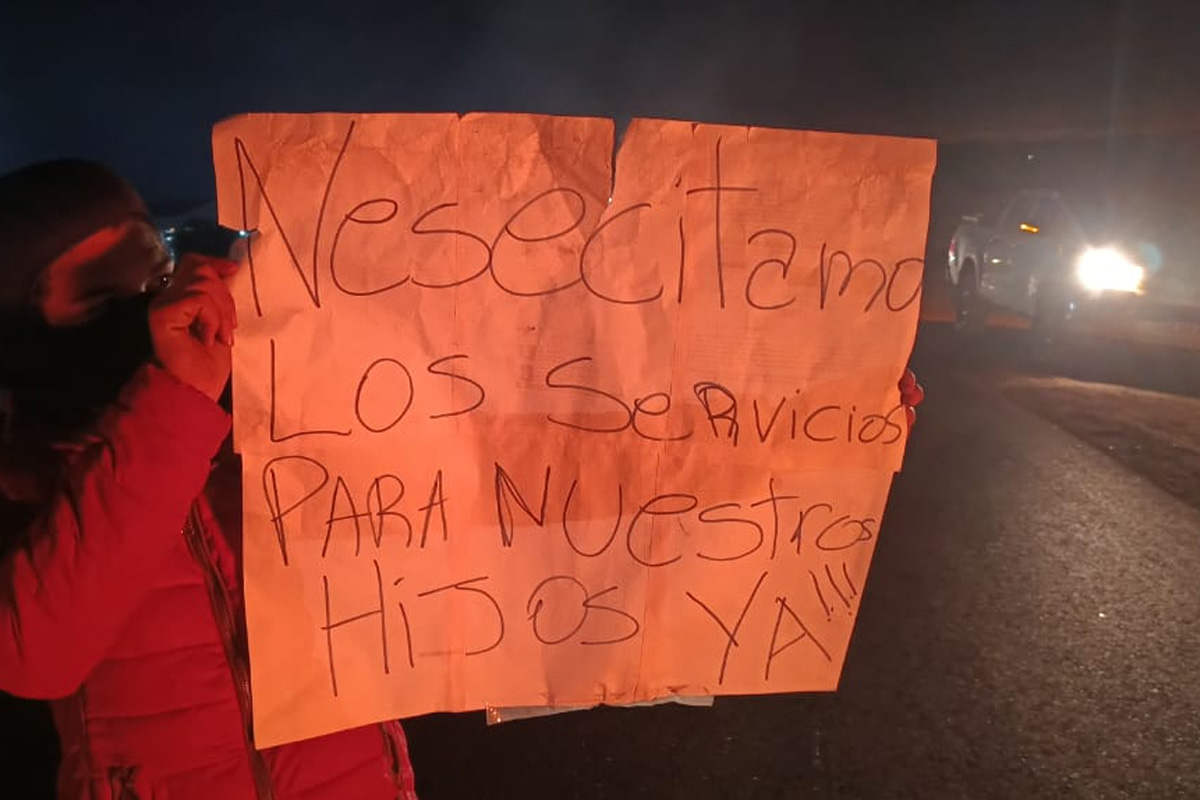 Nesecitamo
Los SeRvicios
PARA NUestros
HiJOS YA!!!!